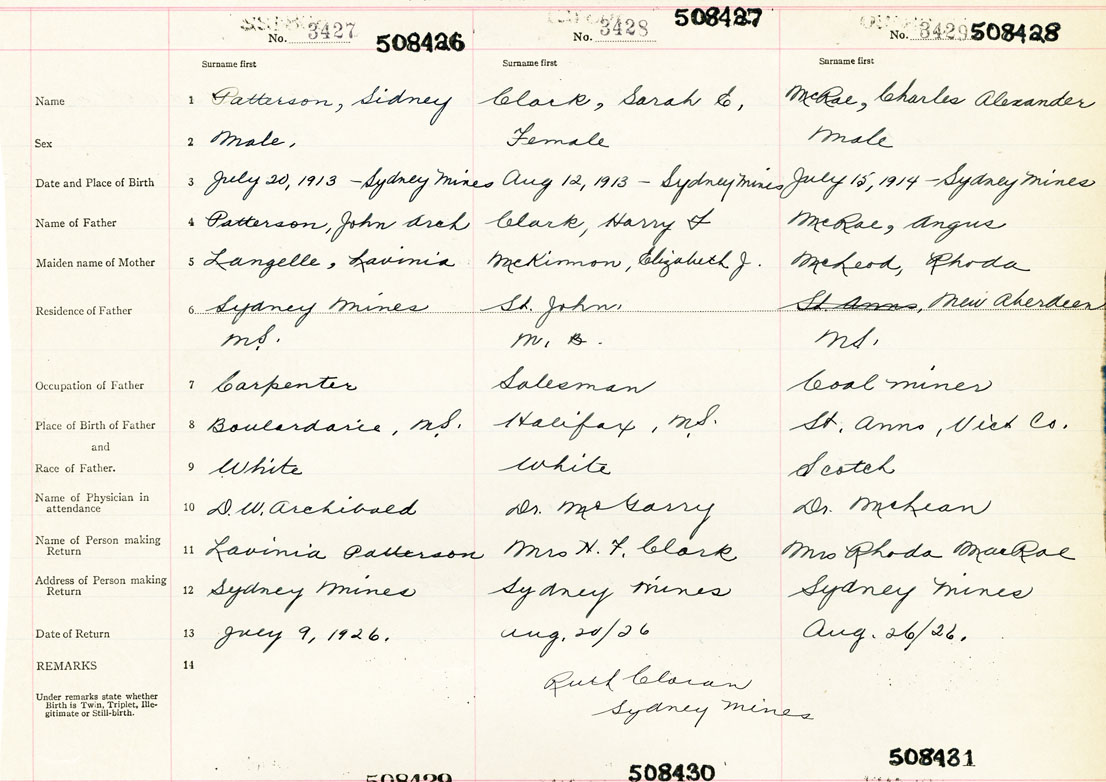 No. 3427 508426
No. 3428 508427
No. 3429 508428
Surname first Surname first Surname first
Name 1 Patterson, Sidney Clark, Sarah E, McRae, Charles Alexander
Sex 2 Male, Female Male
Date and Place of Birth 3 July 20, 1913 - Sydney Mines Aug 12, 1913 - Sydney Mines July 15, 1914 - Sydney Mines
Name of Father 4 Patterson, John Arch Clark, Harry F McRae, Angus
Maiden name of Mother 5 Langelle, Lavinia McKinnon, Elizabeth J. McLeod, Rhoda
Residence of Father 6 Sydney Mines St. John, St. Anns, New Aberdeen
N.S. N. B. N.S.
Occupation of Father 7 Carpenter Salesman Coal miner
Place of Birth of Father 8 Boulardarie, N.S. Halifax, N.S. St. Anns, Vict Co.
and
Race of Father. 9 White White Scotch
Name of Physician in
attendance 10 D. W. Archibald Dr. McGarry Dr. McLean
Name of Person making
Return 11 Lavinia Patterson Mrs H. F. Clark Mrs Rhoda MacRae
Address of Person making
Return 12 Sydney Mines Sydney Mines Sydney Mines
Date of Return 13 July 9, 1926. Aug. 20/26 Aug. 26/26.
REMARKS 14
Under remarks state whether
Birth is Twin, Triplet, Ille-
gitimate or Still-birth.
Ruth Cloran
Sydney Mines
508429 508430 508431